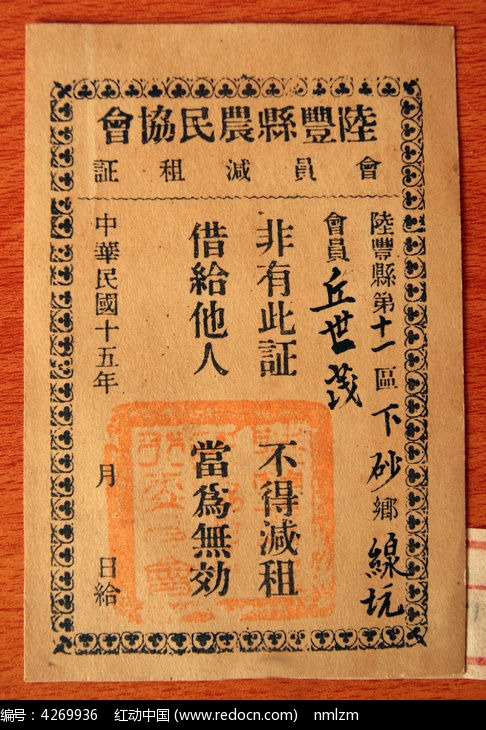 陸豐縣農民協會
會員減租証
陸豐縣第十一區下砂鄉線坑
會員丘世茂
非有此証 不得減租
借給他人 當為無効
中華民國十五年 月 日給
编号：4269936 红动中国 (www.redocn.com) nmlzm